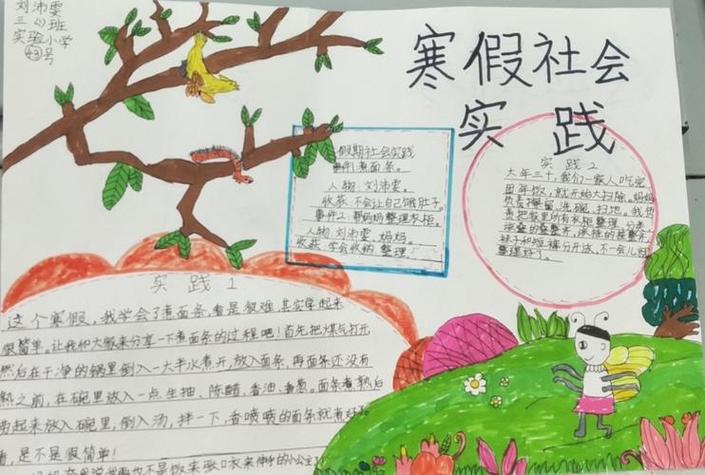 刘沛雯
三(4)班
实验小学
43号
寒假社会
实践
假期社会实践
事件1 煮面条。
人物: 刘沛雯。
收获 不会让自己饿肚子。
事件2 帮妈妈整理衣柜。
人物 刘沛雯、妈妈。
收获: 学会收纳 整理!
实践2
大年三十,我们一家人吃完
团年饭,就开始大扫除。妈妈
洗碗,扫地。我
把家里所有衣柜整理
袜子和短裤分开放,不一会儿就
整理好了。
实践1
这个寒假,我学会了煮面条,看是很难,其实学起来
很简单。让我和大家来分享一下煮面条的过程吧!首先把煤气打开
然后在干净的锅里倒入一大半水煮开,放入面条,再面条还没有
熟之前,在碗里放入一点生抽、陈醋、香油、香葱。面条煮熟后
捞起来放入碗里,倒入汤,拌一下,香喷喷的面条就有好了
看,是不是很简单!